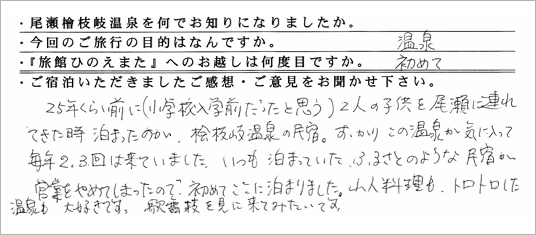 ・尾瀬檜枝岐温泉を何でお知りになりましたか。
・今回のご旅行の目的はなんですか。 温泉
・『旅館ひのえまた』へのお越しは何度目ですか。 初めて
・ご宿泊いただきましたご感想・ご意見をお聞かせ下さい。
25年くらい前に(小学校入学前だったと思う)2人の子供を尾瀬に連れ
てきた時 泊まったのが、桧枝岐温泉の民宿。すっかりこの温泉が気に入って
毎年2.3回は来ていました。いつも泊まっていた、ふるさとのような民宿が
営業をやめてしまったので、初めてここに泊まりました。山人料理も、トロトロした
温泉も 大好きです。 歌舞伎を見に来てみたいです。